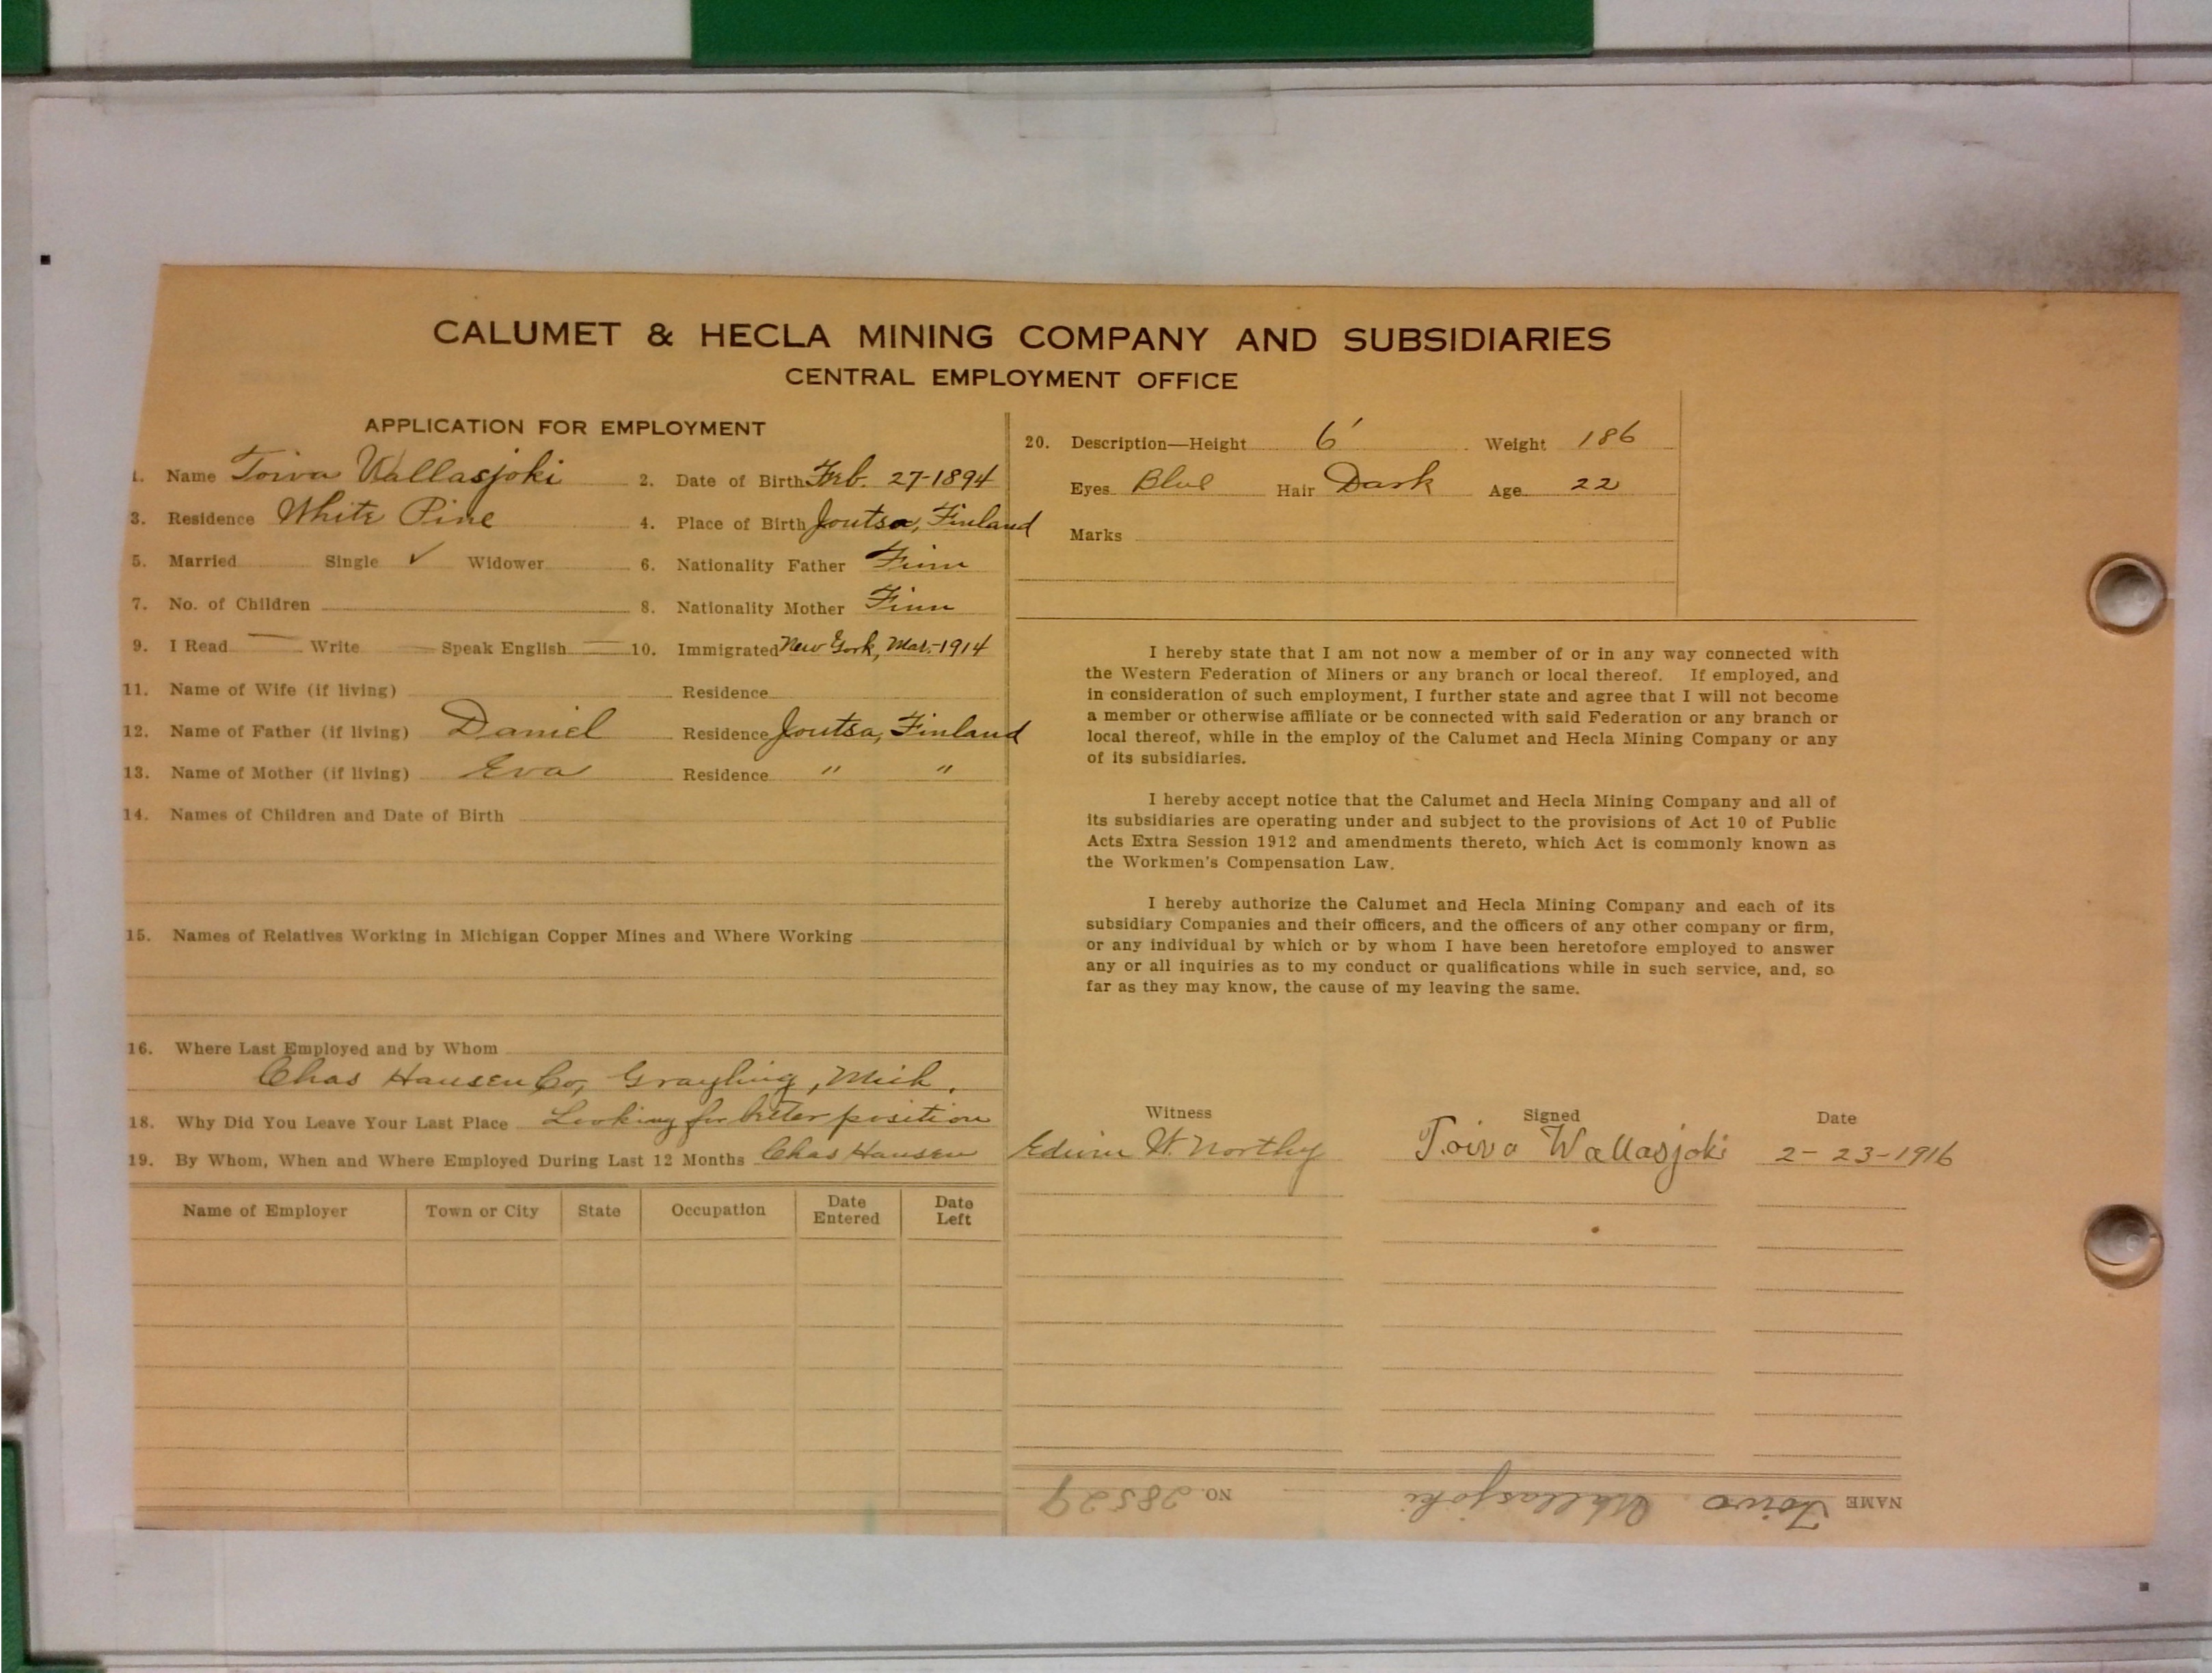 CALUMET & HECLA MINING COMPANY AND SUBSIDIARIES
CENTRAL EMPLOYMENT OFFICE
APPLICATION FOR EMPLOYMENT
1. Name Toivo Wallasjoki 2. Date of Birth Feb. 27-1894
3. Residence White Pine 4. Place of Birth Joutsa, Finland
5. Married Single ✓ Widower 6. Nationality Father Finn
7. No. of Children 8. Nationality Mother Finn
9. I Read — Write — Speak English — 10. Immigrated New York, Mar.-1914
11. Name of Wife (if living) Residence
12. Name of Father (if living) Daniel Residence Joutsa, Finland
13. Name of Mother (if living) Eva Residence " "
14. Names of Children and Date of Birth
15. Names of Relatives Working in Michigan Copper Mines and Where Working
16. Where Last Employed and by Whom
Chas Hansen Co, Grayling, Mich.
18. Why Did You Leave Your Last Place Looking for better position
19. By Whom, When and Where Employed During Last 12 Months Chas Hansen
Name of Employer Town or City State Occupation Date Entered Date Left
20. Description—Height 6' Weight 186
Eyes Blue Hair Dark Age 22
Marks
I hereby state that I am not now a member of or in any way connected with
the Western Federation of Miners or any branch or local thereof. If employed, and
in consideration of such employment, I further state and agree that I will not become
a member or otherwise affiliate or be connected with said Federation or any branch or
local thereof, while in the employ of the Calumet and Hecla Mining Company or any
of its subsidiaries.
I hereby accept notice that the Calumet and Hecla Mining Company and all of
its subsidiaries are operating under and subject to the provisions of Act 10 of Public
Acts Extra Session 1912 and amendments thereto, which Act is commonly known as
the Workmen's Compensation Law.
I hereby authorize the Calumet and Hecla Mining Company and each of its
subsidiary Companies and their officers, and the officers of any other company or firm,
or any individual by which or by whom I have been heretofore employed to answer
any or all inquiries as to my conduct or qualifications while in such service, and, so
far as they may know, the cause of my leaving the same.
Witness Signed Date
Edwin W. Northy Toivo Wallasjoki 2-23-1916
NAME Toivo Wallasjoki NO. 28529